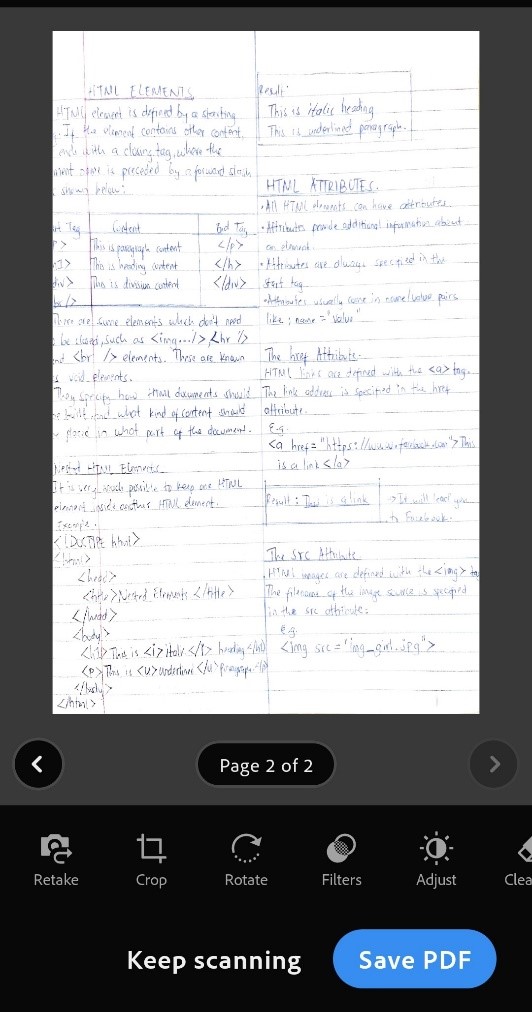 HTML ELEMENTS
HTML element is defined by a starting
g. If the element contains other content,
ends with a closing tag, where the
ment name is preceded by a forward slash
shown below:
Tag Content End Tag
p> This is paragraph content </p>
This is heading content </h>
div> This is division content </div>
br/>
There are some elements which don't need
be closed, such as <img.../>, <hr />
and <br /> elements. These are known
s void elements.
They specify how HTML documents should
be built and what kind of content should
placed in what part of the document.
Nested HTML Elements
It is very much possible to keep one HTML
element inside another HTML element.
Example.
<!DOCTYPE html>
<html>
<head>
<title>Nested Elements </title>
</head>
<body>
<h1> This is <i>italic </i> heading </h1>
<p> This is <u>underlined </u> paragraph </p>
</body>
</html>
Result:
This is italic heading
This is underlined paragraph.
HTML ATTRIBUTES.
• All HTML elements can have attributes.
• Attributes provide additional information about
an element.
• Attributes are always specified in the
start tag.
• Attributes usually come in name/value pairs
like; name = "value"
The href Attribute.
HTML links are defined with the <a> tag.
The link address is specified in the href
attribute.
E.g.
<a href="https://www.facebook.com">This
is a link </a>
Result: This is a link → It will lead you
to Facebook.
The src Attribute
HTML images are defined with the <img> ta
The filename of the image source is specified
in the src attribute:
e.g.
<img src="img_girl.jpg">
Page 2 of 2
Retake Crop Rotate Filters Adjust Clea
Keep scanning Save PDF